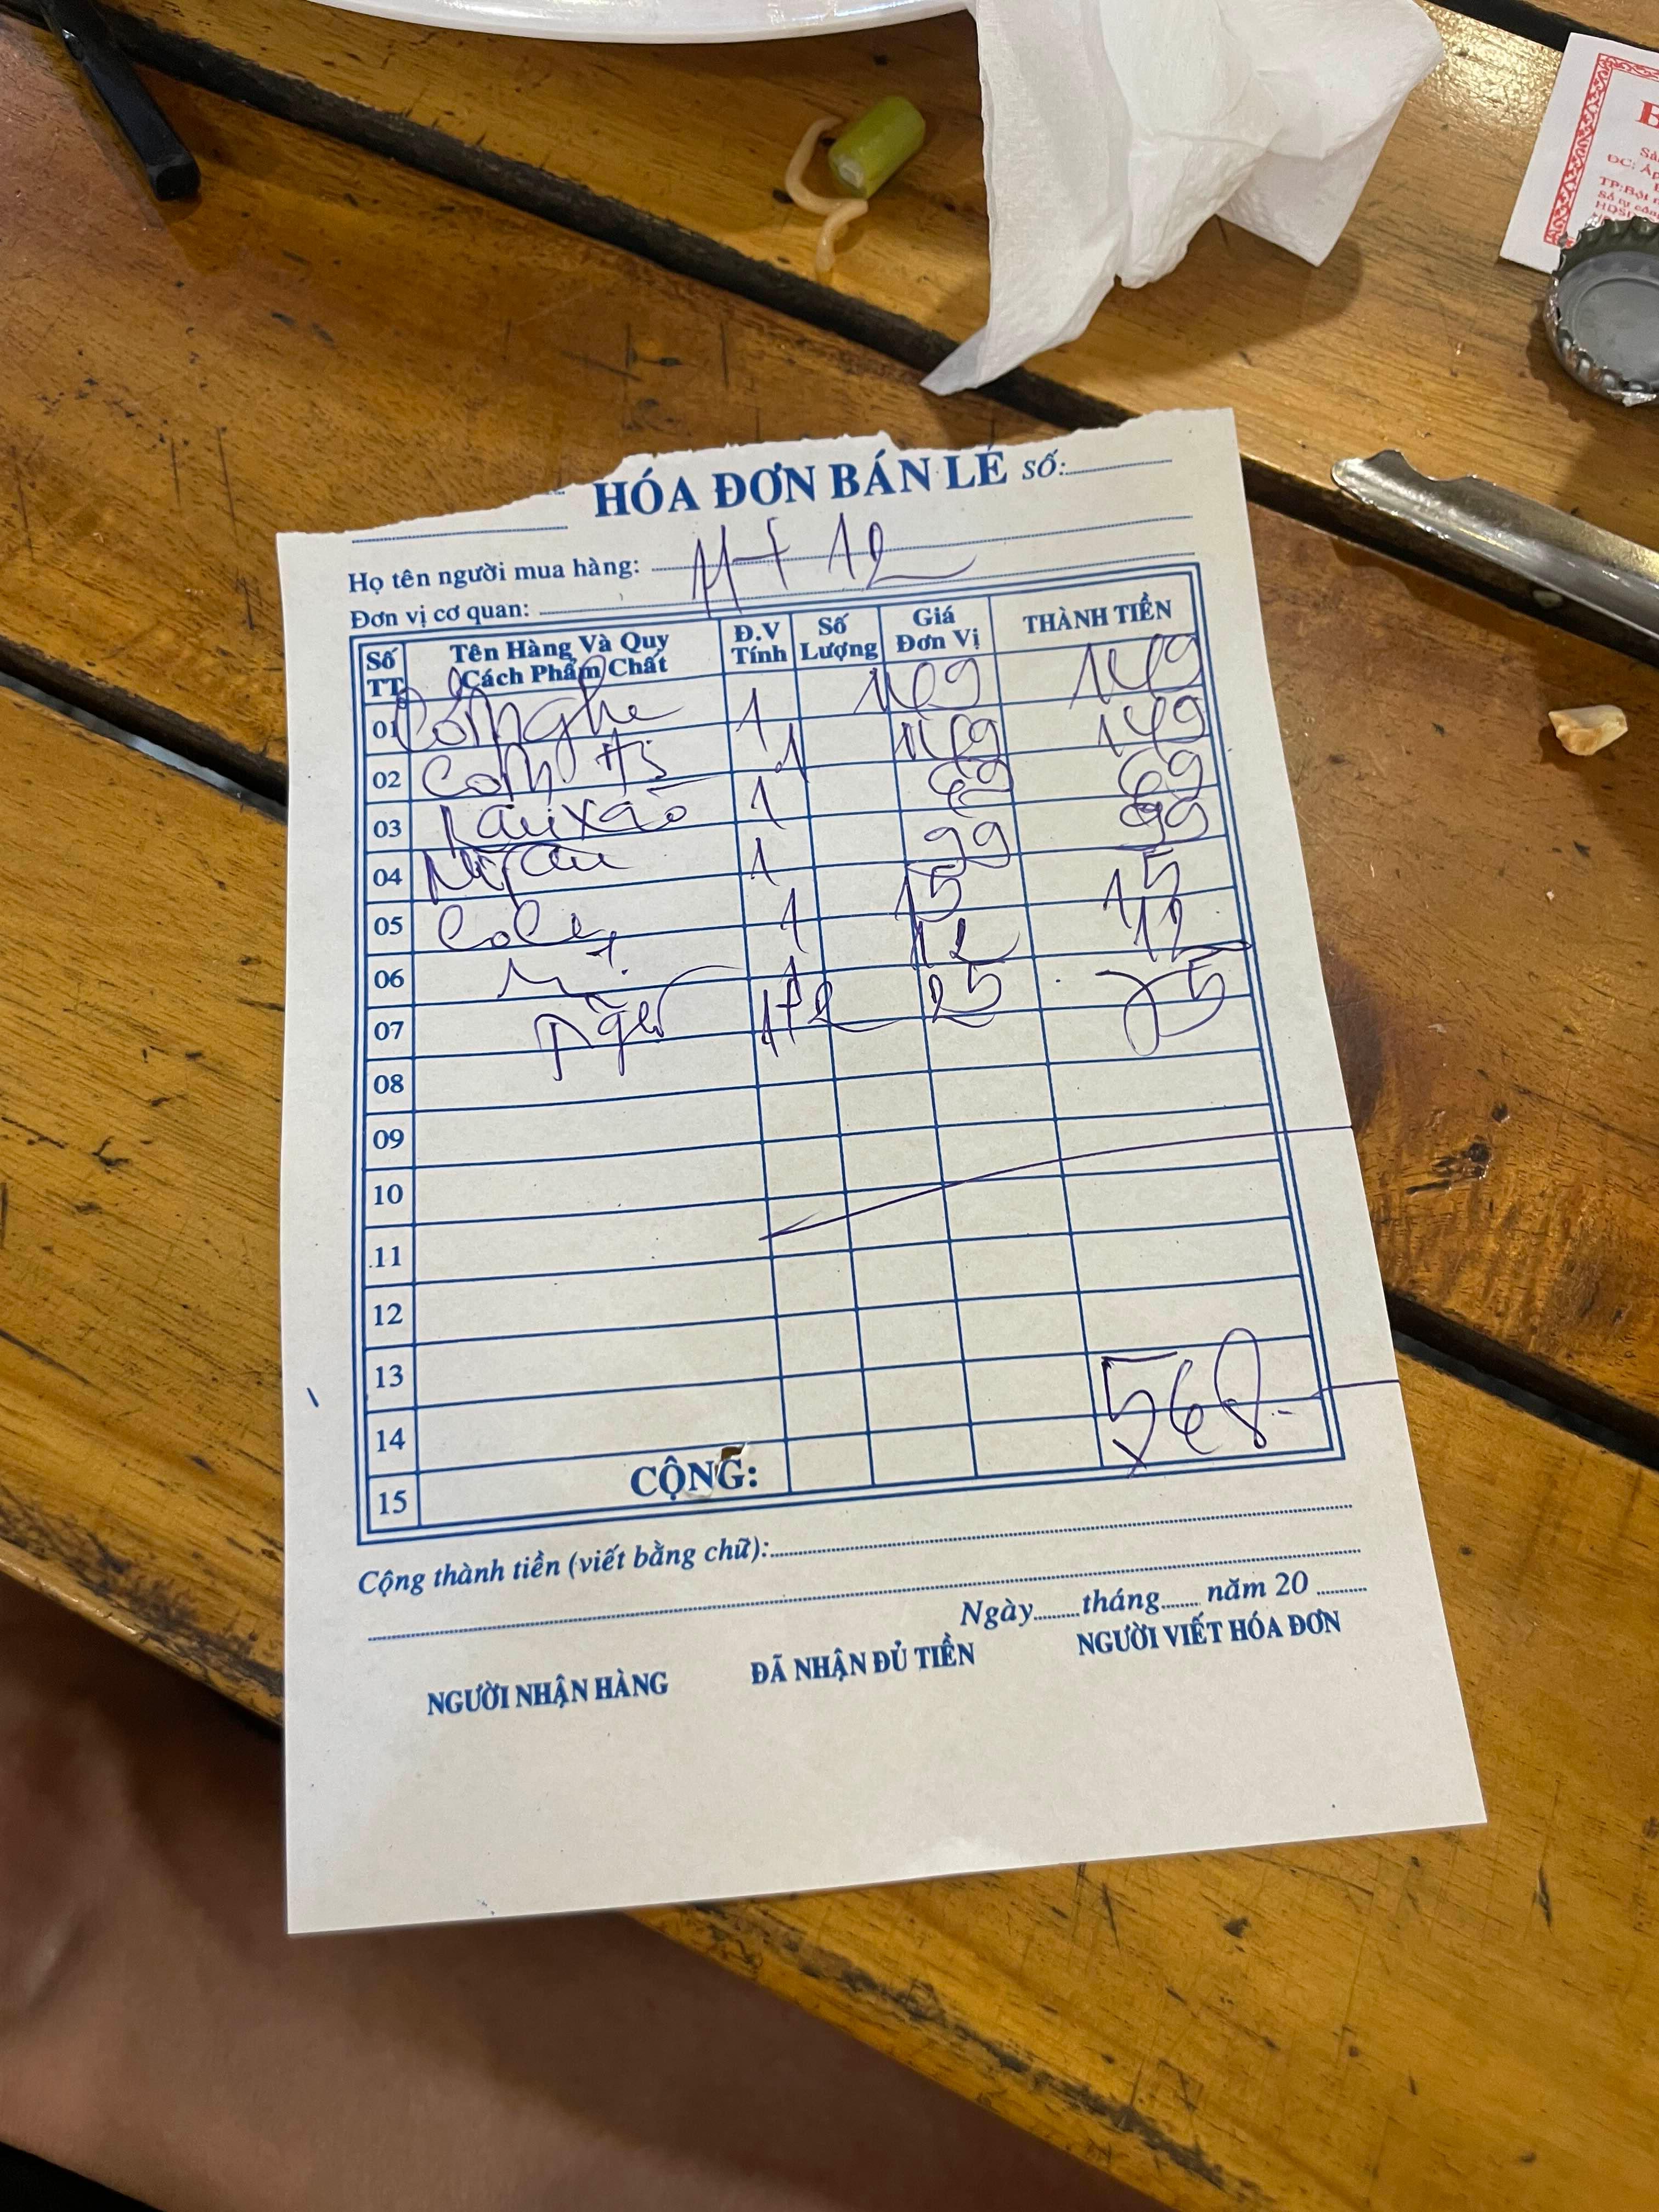 HÓA ĐƠN BÁN LẺ SỐ:
Họ tên người mua hàng: M+ 12
Đơn vị cơ quan:
Số TT Tên Hàng Và Quy Cách Phẩm Chất Đ.V Tính Số Lượng Giá Đơn Vị THÀNH TIỀN
01 Cơm ghẹ 1 149 149
02 Cơm 1 149 149
03 xào 1 69 69
04 1 99 99
05 Coca 1 15 15
06 1 12 12
07 Tiger 1+2 25 75
08
09
10
11
12
13
14
15 CỘNG: 568
Cộng thành tiền (viết bằng chữ):
Ngày tháng năm 20
NGƯỜI NHẬN HÀNG ĐÃ NHẬN ĐỦ TIỀN NGƯỜI VIẾT HÓA ĐƠN
ĐC: Ấp